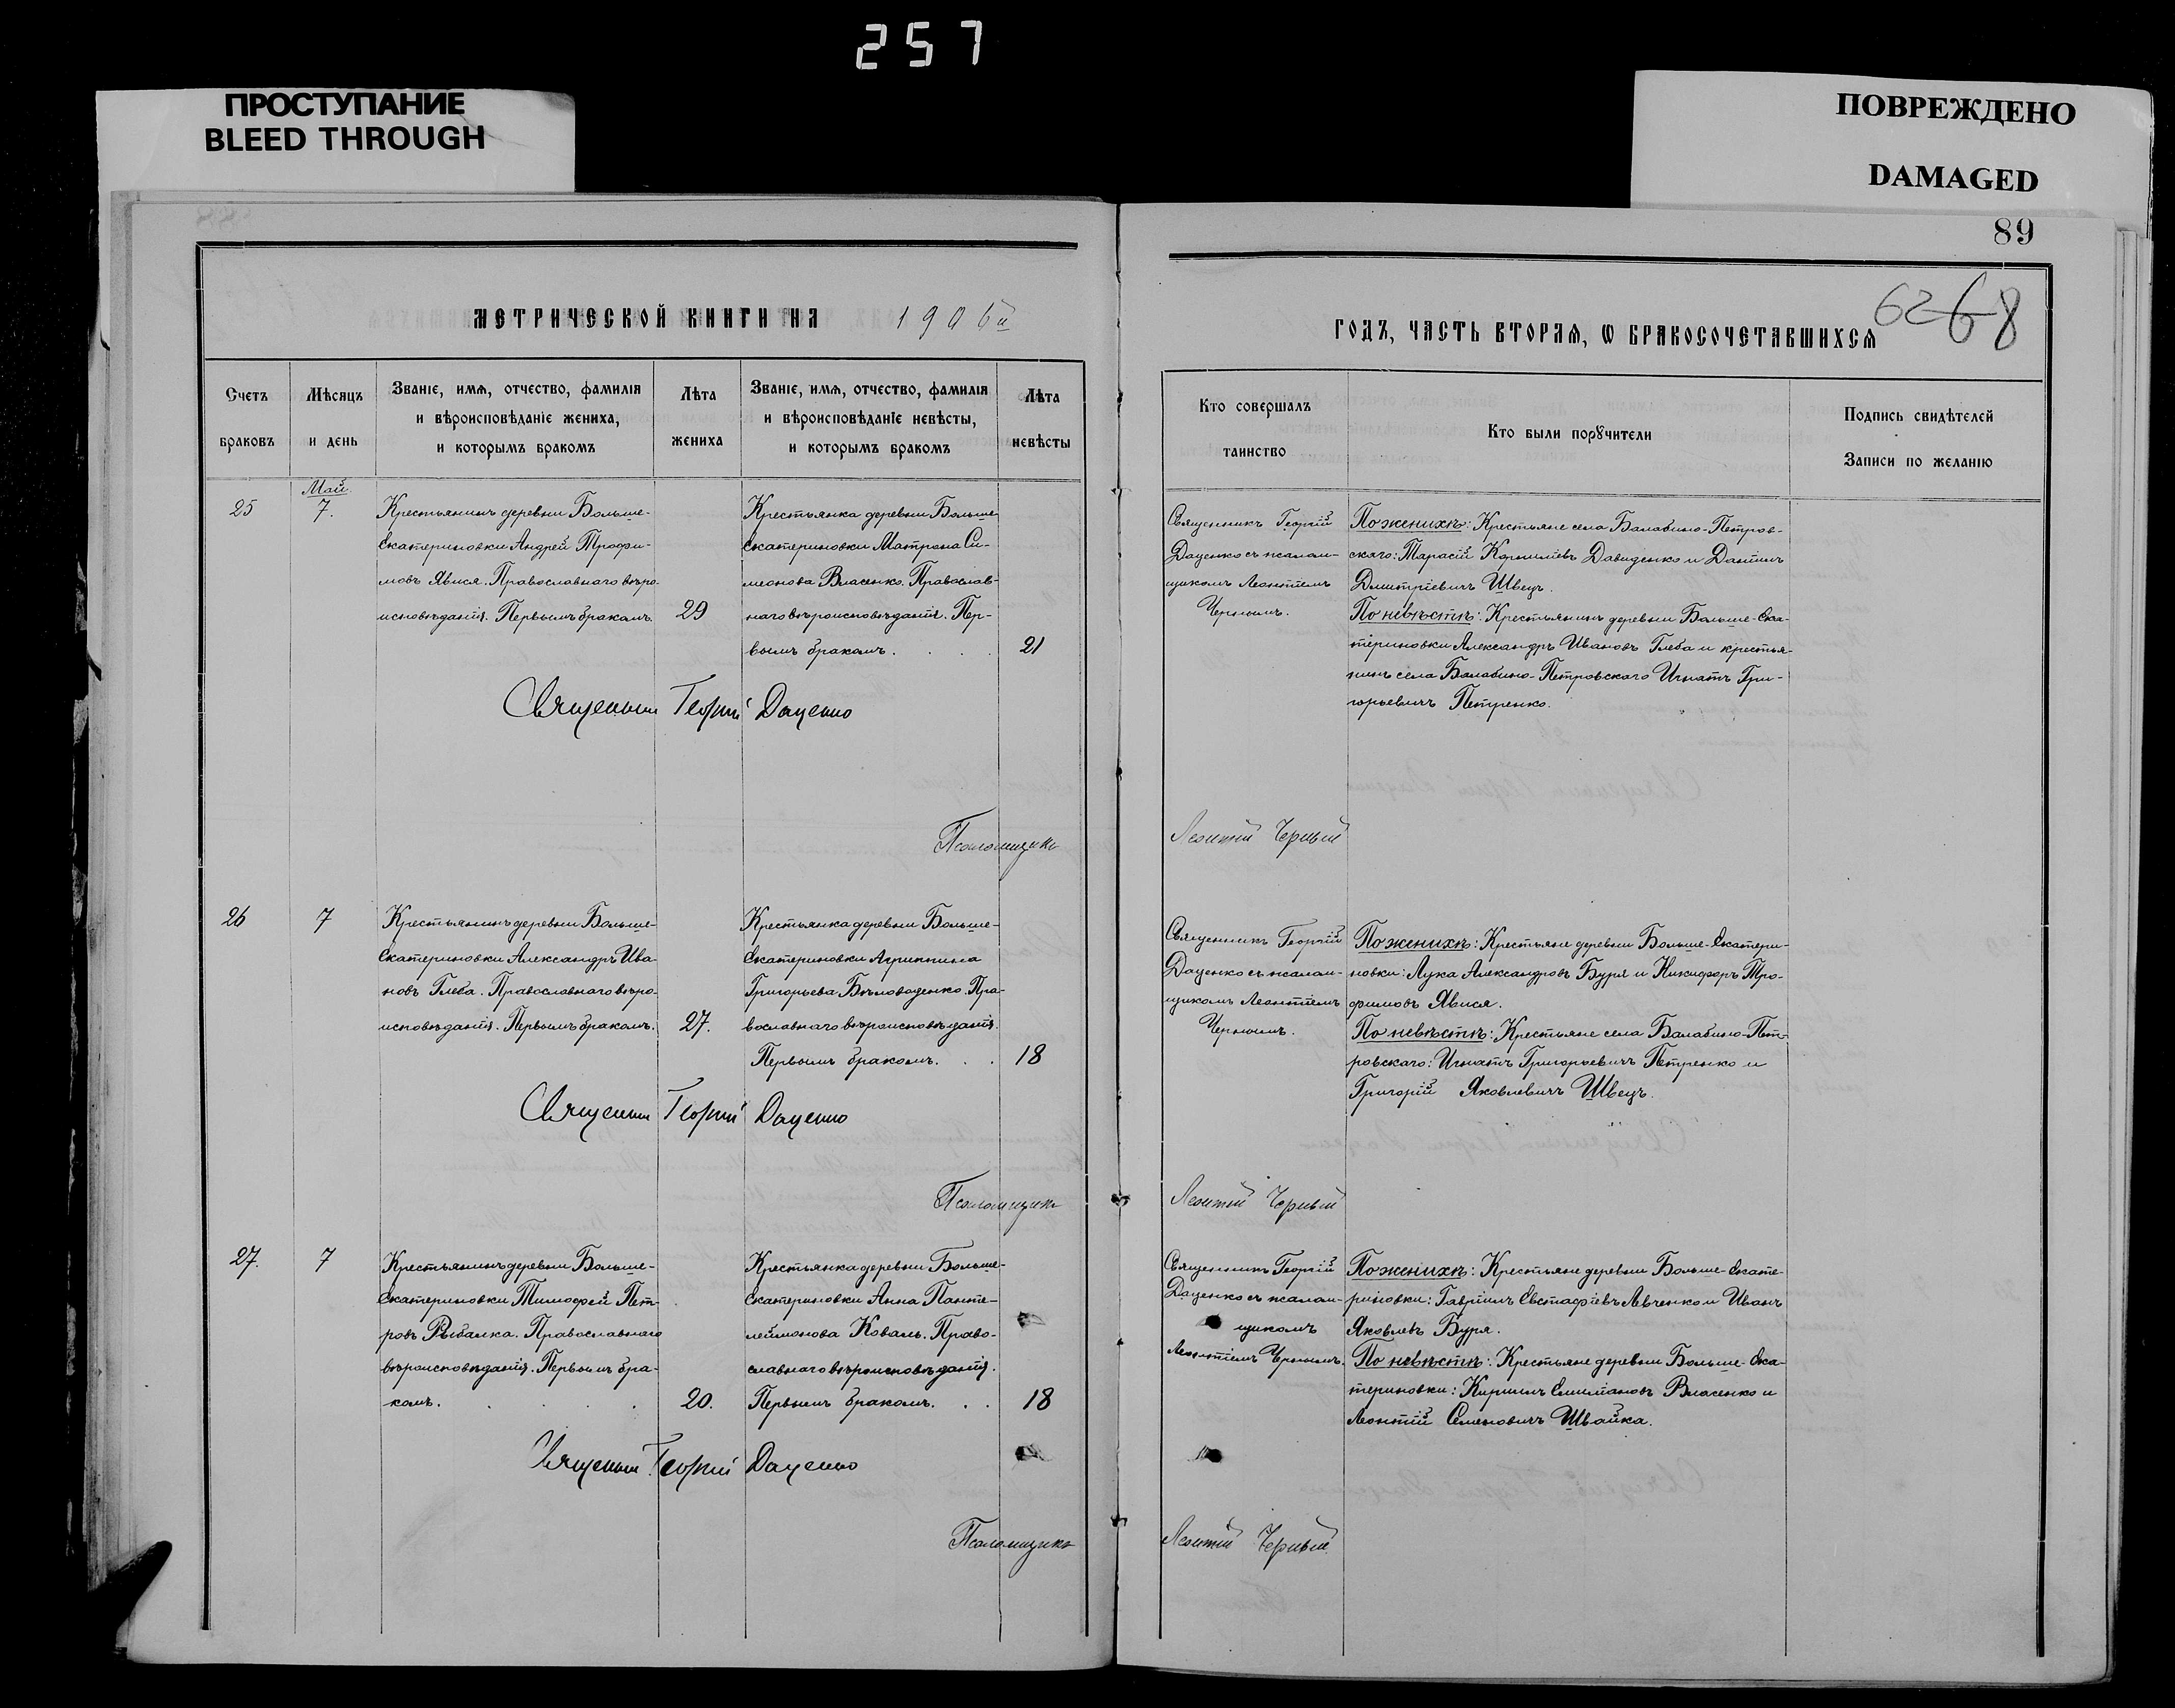 257
ПРОСТУПАНИЕ
BLEED THROUGH
ПОВРЕЖДЕНО
DAMAGED
89
МЕТРИЧЕСКОЙ КНИГИ НА 1906й
ГОДЪ, ЧАСТЬ ВТОРАЯ, Ѡ БРАКОСОЧЕТАВШИХСЯ
62 68
Счетъ
браковъ
Мѣсяцъ
и день
Званіе, имя, отчество, фамилія
и вѣроисповѣданіе жениха,
и которымъ бракомъ
Лѣта
жениха
Званіе, имя, отчество, фамилія
и вѣроисповѣданіе невѣсты,
и которымъ бракомъ
Лѣта
невѣсты
Кто совершалъ
таинство
Кто были порꙋчители
Подпись свидѣтелей
Записи по желанію
25
Май
7.
Крестьянинъ деревни Больше-
Екатериновки Андрей Трофи-
мовъ Явися. Православнаго вѣро-
исповѣданія. Первымъ бракомъ.
29
Крестьянка деревни Больше-
Екатериновки Матрона Си-
меонова Власенко. Православ-
наго вѣроисповѣданія. Пер-
вымъ бракомъ.
21
Священникъ Георгій
Даценко съ псалом-
щикомъ Леонтіемъ
Чернымъ.
По женихѣ: Крестьяне села Балабино-Петров-
скаго: Тарасій Корнилiевъ Давиденко и Даніилъ
Дмитріевичъ Швецъ.
По невѣстѣ: Крестьянинъ деревни Больше-Ека-
териновки Александръ Ивановъ Глеба и крестья-
нинъ села Балабино-Петровскаго Игнатъ Гри-
горьевичъ Петренко.
Священникъ Георгій Даценко
Псаломщикъ Леонтій Черный
26
7
Крестьянинъ деревни Больше-
Екатериновки Александръ Ива-
новъ Глеба. Православнаго вѣро-
исповѣданія. Первымъ бракомъ.
27.
Крестьянка деревни Больше-
Екатериновки Агриппина
Григорьева Бѣловоденко. Пра-
вославнаго вѣроисповѣданія.
Первымъ бракомъ.
18
Священникъ Георгій
Даценко съ псалом-
щикомъ Леонтіемъ
Чернымъ.
По женихѣ: Крестьяне деревни Больше-Екатери-
новки: Лука Александровъ Буря и Никифоръ Тро-
фимовъ Явися.
По невѣстѣ: Крестьяне села Балабино-Пет-
ровскаго: Игнатъ Григорьевичъ Петренко и
Григорій Яковлевичъ Швецъ.
Священникъ Георгій Даценко
Псаломщикъ Леонтій Черный
27.
7
Крестьянинъ деревни Больше-
Екатериновки Тимофей Пет-
ровъ Рыбалка. Православнаго
вѣроисповѣданія. Первымъ бра-
комъ.
20.
Крестьянка деревни Больше-
Екатериновки Анна Панте-
леймонова Коваль. Право-
славнаго вѣроисповѣданія.
Первымъ бракомъ.
18
Священникъ Георгій
Даценко съ псалом-
щикомъ
Леонтіемъ Чернымъ.
По женихѣ: Крестьяне деревни Больше-Екате-
риновки: Гавріилъ Евстафіевъ Левченко и Иванъ
Яковлевъ Буря.
По невѣстѣ: Крестьяне деревни Больше-Ека-
териновки: Кириллъ Емиліановъ Власенко и
Леонтій Семеновичъ Швайка.
Священникъ Георгій Даценко
Псаломщикъ Леонтій Черный